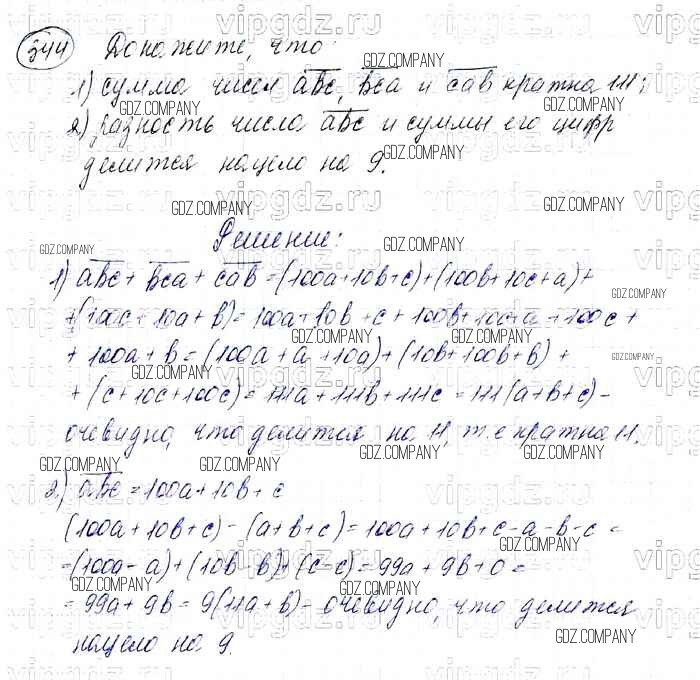 344 Докажите, что:
1) сумма чисел abc, bca и cab кратна 111;
2) разность числа abc и суммы его цифр
делится нацело на 9.
Решение:
1) abc + bca + cab = (100a+10b+c)+(100b+10c+a)+
+(100c+10a+b)= 100a+10b+c+100b+10c+a+100c+
+100a+b=(100a+a+10a)+(10b+100b+b)+
+(c+10c+100c)=111a+111b+111c=111(a+b+c)-
очевидно, что делится на 11, т.е кратна 11.
2) abc = 100a+10b+c
(100a+10b+c)-(a+b+c)=100a+10b+c-a-b-c=
=(100a-a)+(10b-b)+(c-c)=99a+9b+0=
=99a+9b=9(11a+b)- очевидно, что делится
нацело на 9.